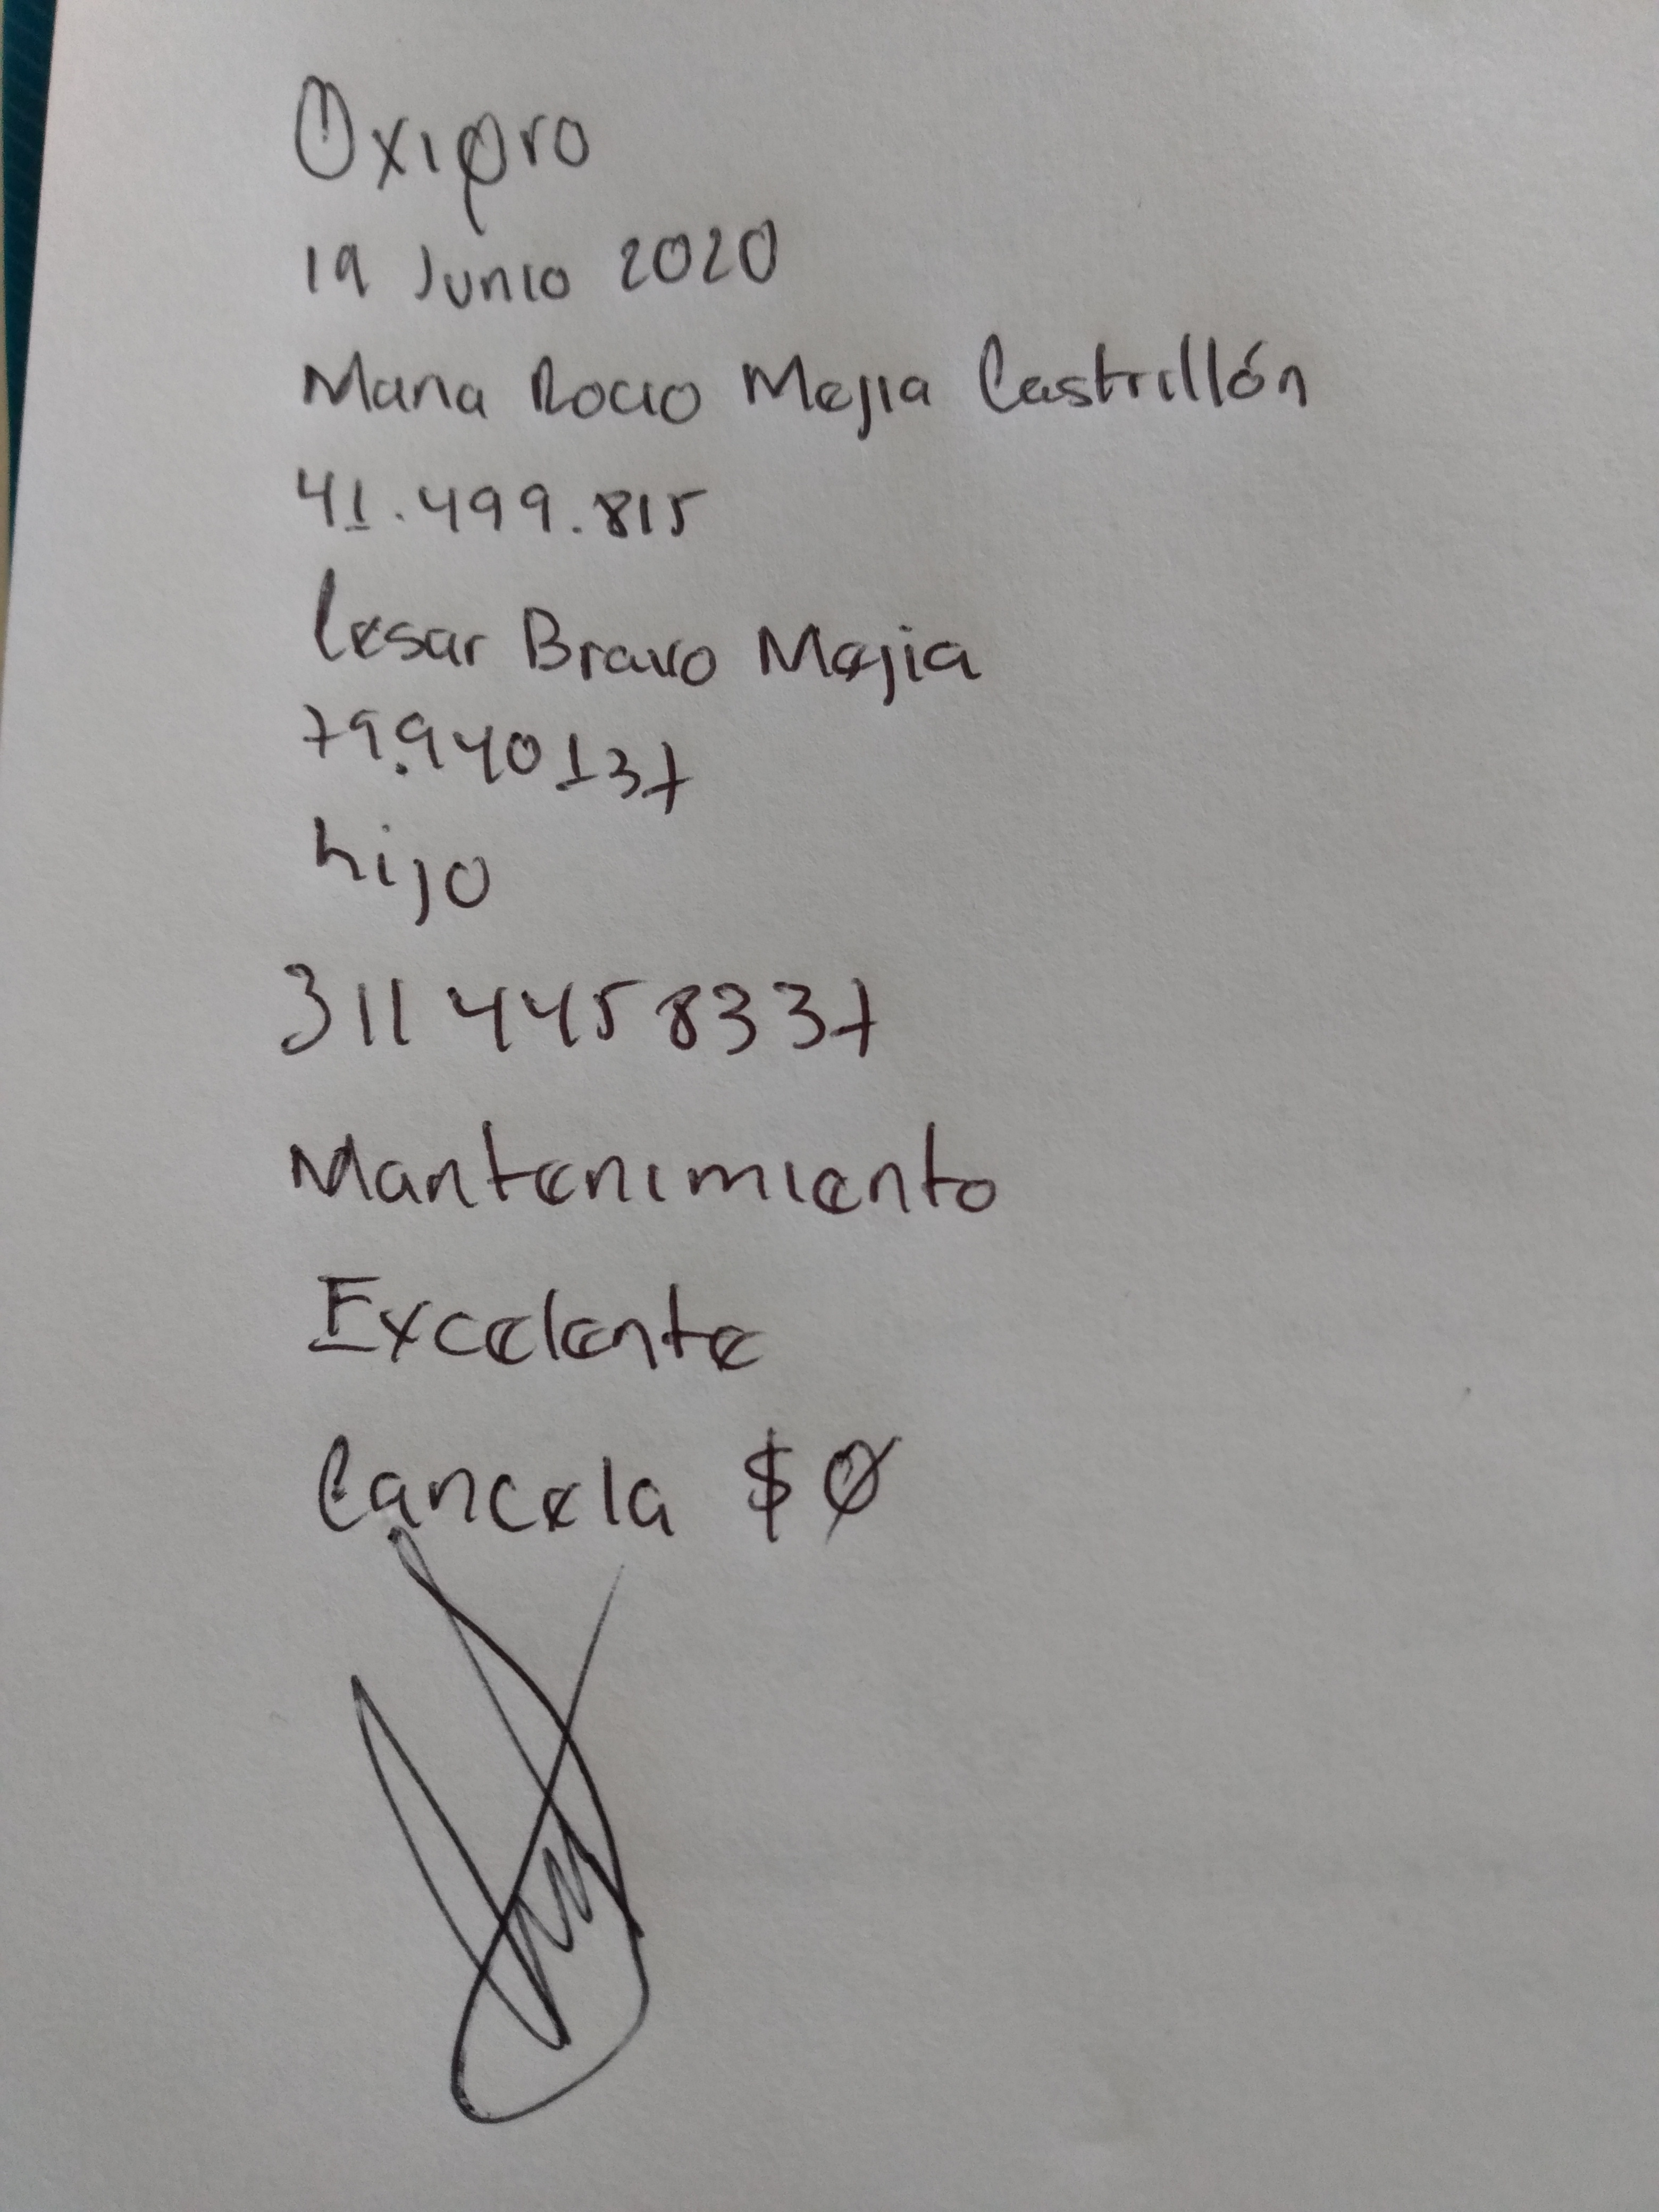 Oxipro
19 Junio 2020
Maria Rocio Mejia Castrillón
41.499.815
Cesar Bravo Mejia
79.940137
hijo
311 4458337
Mantenimiento
Excelente
Cancela $0